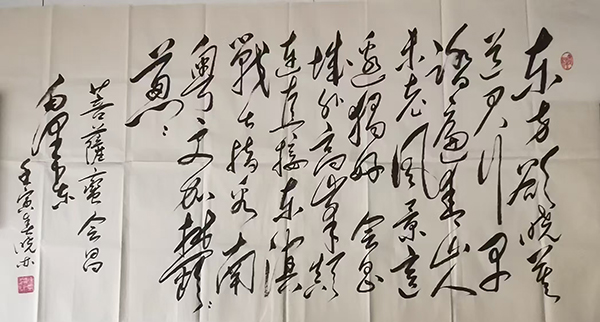 东方欲晓莫
道君行早
踏遍青山人
未老风景这
边独好 会昌
城外高峰颠
连直接东溟
戰士指看南
粤更加郁々
葱々
菩薩蛮会昌
毛泽东
壬寅春晓